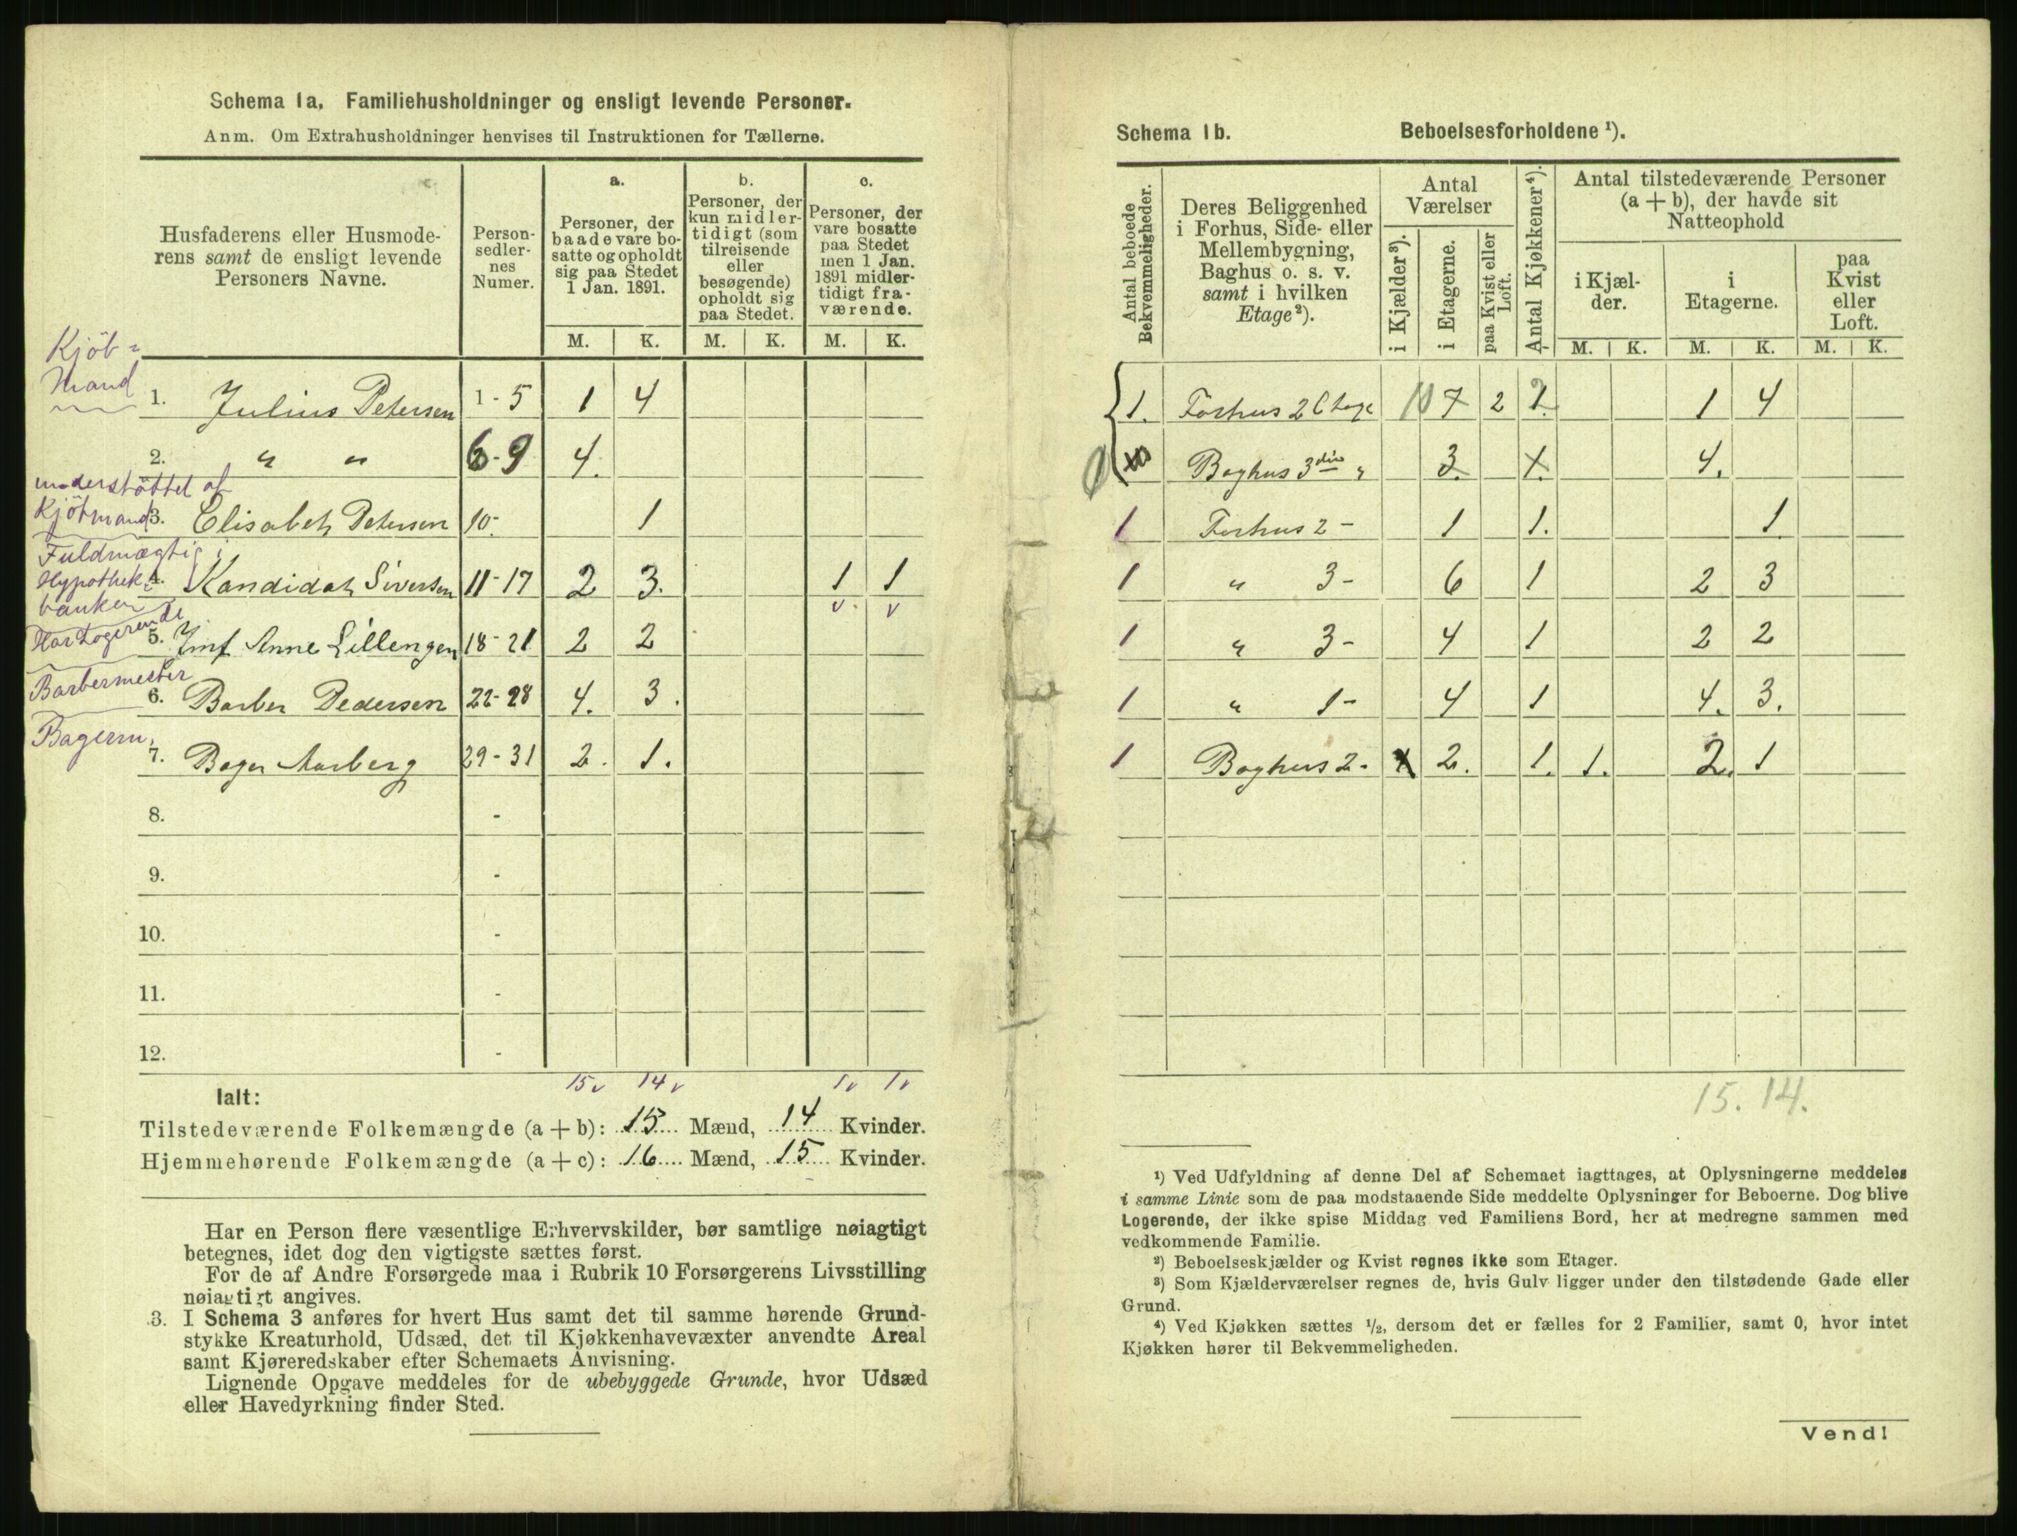 Schema 1a. Familiehusholdninger og ensligt levende Personer.
Anm. Om Extrahusholdninger henvises til Instruktionen for Tællerne.
Husfaderens eller Husmode-
rens samt de ensligt levende
Personers Navne.
Person-
sedler-
nes
Numer.
a.
Personer, der
baade vare bo-
satte og opholdt
sig paa Stedet
1 Jan. 1891.
b.
Personer, der
kun midler-
tidigt (som
tilreisende
eller
besøgende)
opholdt sig
paa Stedet.
c.
Personer, der
vare bosatte
paa Stedet
men 1 Jan.
1891 midler-
tidigt fra-
værende.
M. K. M. K. M. K.
Kjöb-
mand
1. Julius Petersen 1-5 1 4
2. " " 6-9 4.
understöttet af
Kjöbmand
3. Elisabeth Petersen 10- 1
Fuldmægtig i
Hypothek-
banken
4. Kandidat Siversen 11-17 2 3. 1 1
v. v
Har Logerende
5. Jmf Anne Lillengen 18-21 2 2
Barbermester
6. Barber Pedersen 22-28 4. 3.
Bagerm.
7. Bager Aarberg 29-31 2. 1.
8. -
9. -
10. -
11. -
12. -
15v 14v 1v 1v
Ialt:
Tilstedeværende Folkemængde (a + b): 15 Mænd, 14 Kvinder.
Hjemmehørende Folkemængde (a + c): 16 Mænd, 15 Kvinder.
Har en Person flere væsentlige Erhvervskilder, bør samtlige nøiagtigt
betegnes, idet dog den vigtigste sættes først.
For de af Andre Forsørgede maa i Rubrik 10 Forsørgerens Livsstilling
nøiagtigt angives.
3. I Schema 3 anføres for hvert Hus samt det til samme hørende Grund-
stykke Kreaturhold, Udsæd, det til Kjøkkenhavevæxter anvendte Areal
samt Kjøreredskaber efter Schemaets Anvisning.
Lignende Opgave meddeles for de ubebyggede Grunde, hvor Udsæd
eller Havedyrkning finder Sted.
Schema 1b. Beboelsesforholdene ¹).
Antal beboede
Bekvemmeligheder.
Deres Beliggenhed
i Forhus, Side- eller
Mellembygning,
Baghus o. s. v.
samt i hvilken
Etage²).
Antal
Værelser
i Kjælder³).
i Etagerne.
paa Kvist eller
Loft.
Antal Kjøkkener⁴).
Antal tilstedeværende Personer
(a + b), der havde sit
Natteophold
i Kjæl-
der.
i
Etagerne.
paa
Kvist
eller
Loft.
M. K. M. K. M. K.
1. Forhus 2 Etage 10 7 2 2 1 4
Baghus 3die " 3. 1. 4.
1 Forhus 2 - 1 1. 1.
1 " 3- 6 1 2 3
1 " 3- 4 1 2 2
1 " 1- 4 1 4. 3.
1 Baghus 2- x 2. 1. 1. 2. 1
15. 14.
¹) Ved Udfyldning af denne Del af Schemaet iagttages, at Oplysningerne meddeles
i samme Linie som de paa modstaaende Side meddelte Oplysninger for Beboerne. Dog blive
Logerende, der ikke spise Middag ved Familiens Bord, her at medregne sammen med
vedkommende Familie.
²) Beboelseskjælder og Kvist regnes ikke som Etager.
³) Som Kjælderværelser regnes de, hvis Gulv ligger under den tilstødende Gade eller
Grund.
⁴) Ved Kjøkken sættes ½, dersom det er fælles for 2 Familier, samt 0, hvor intet
Kjøkken hører til Bekvemmeligheden.
Vend!